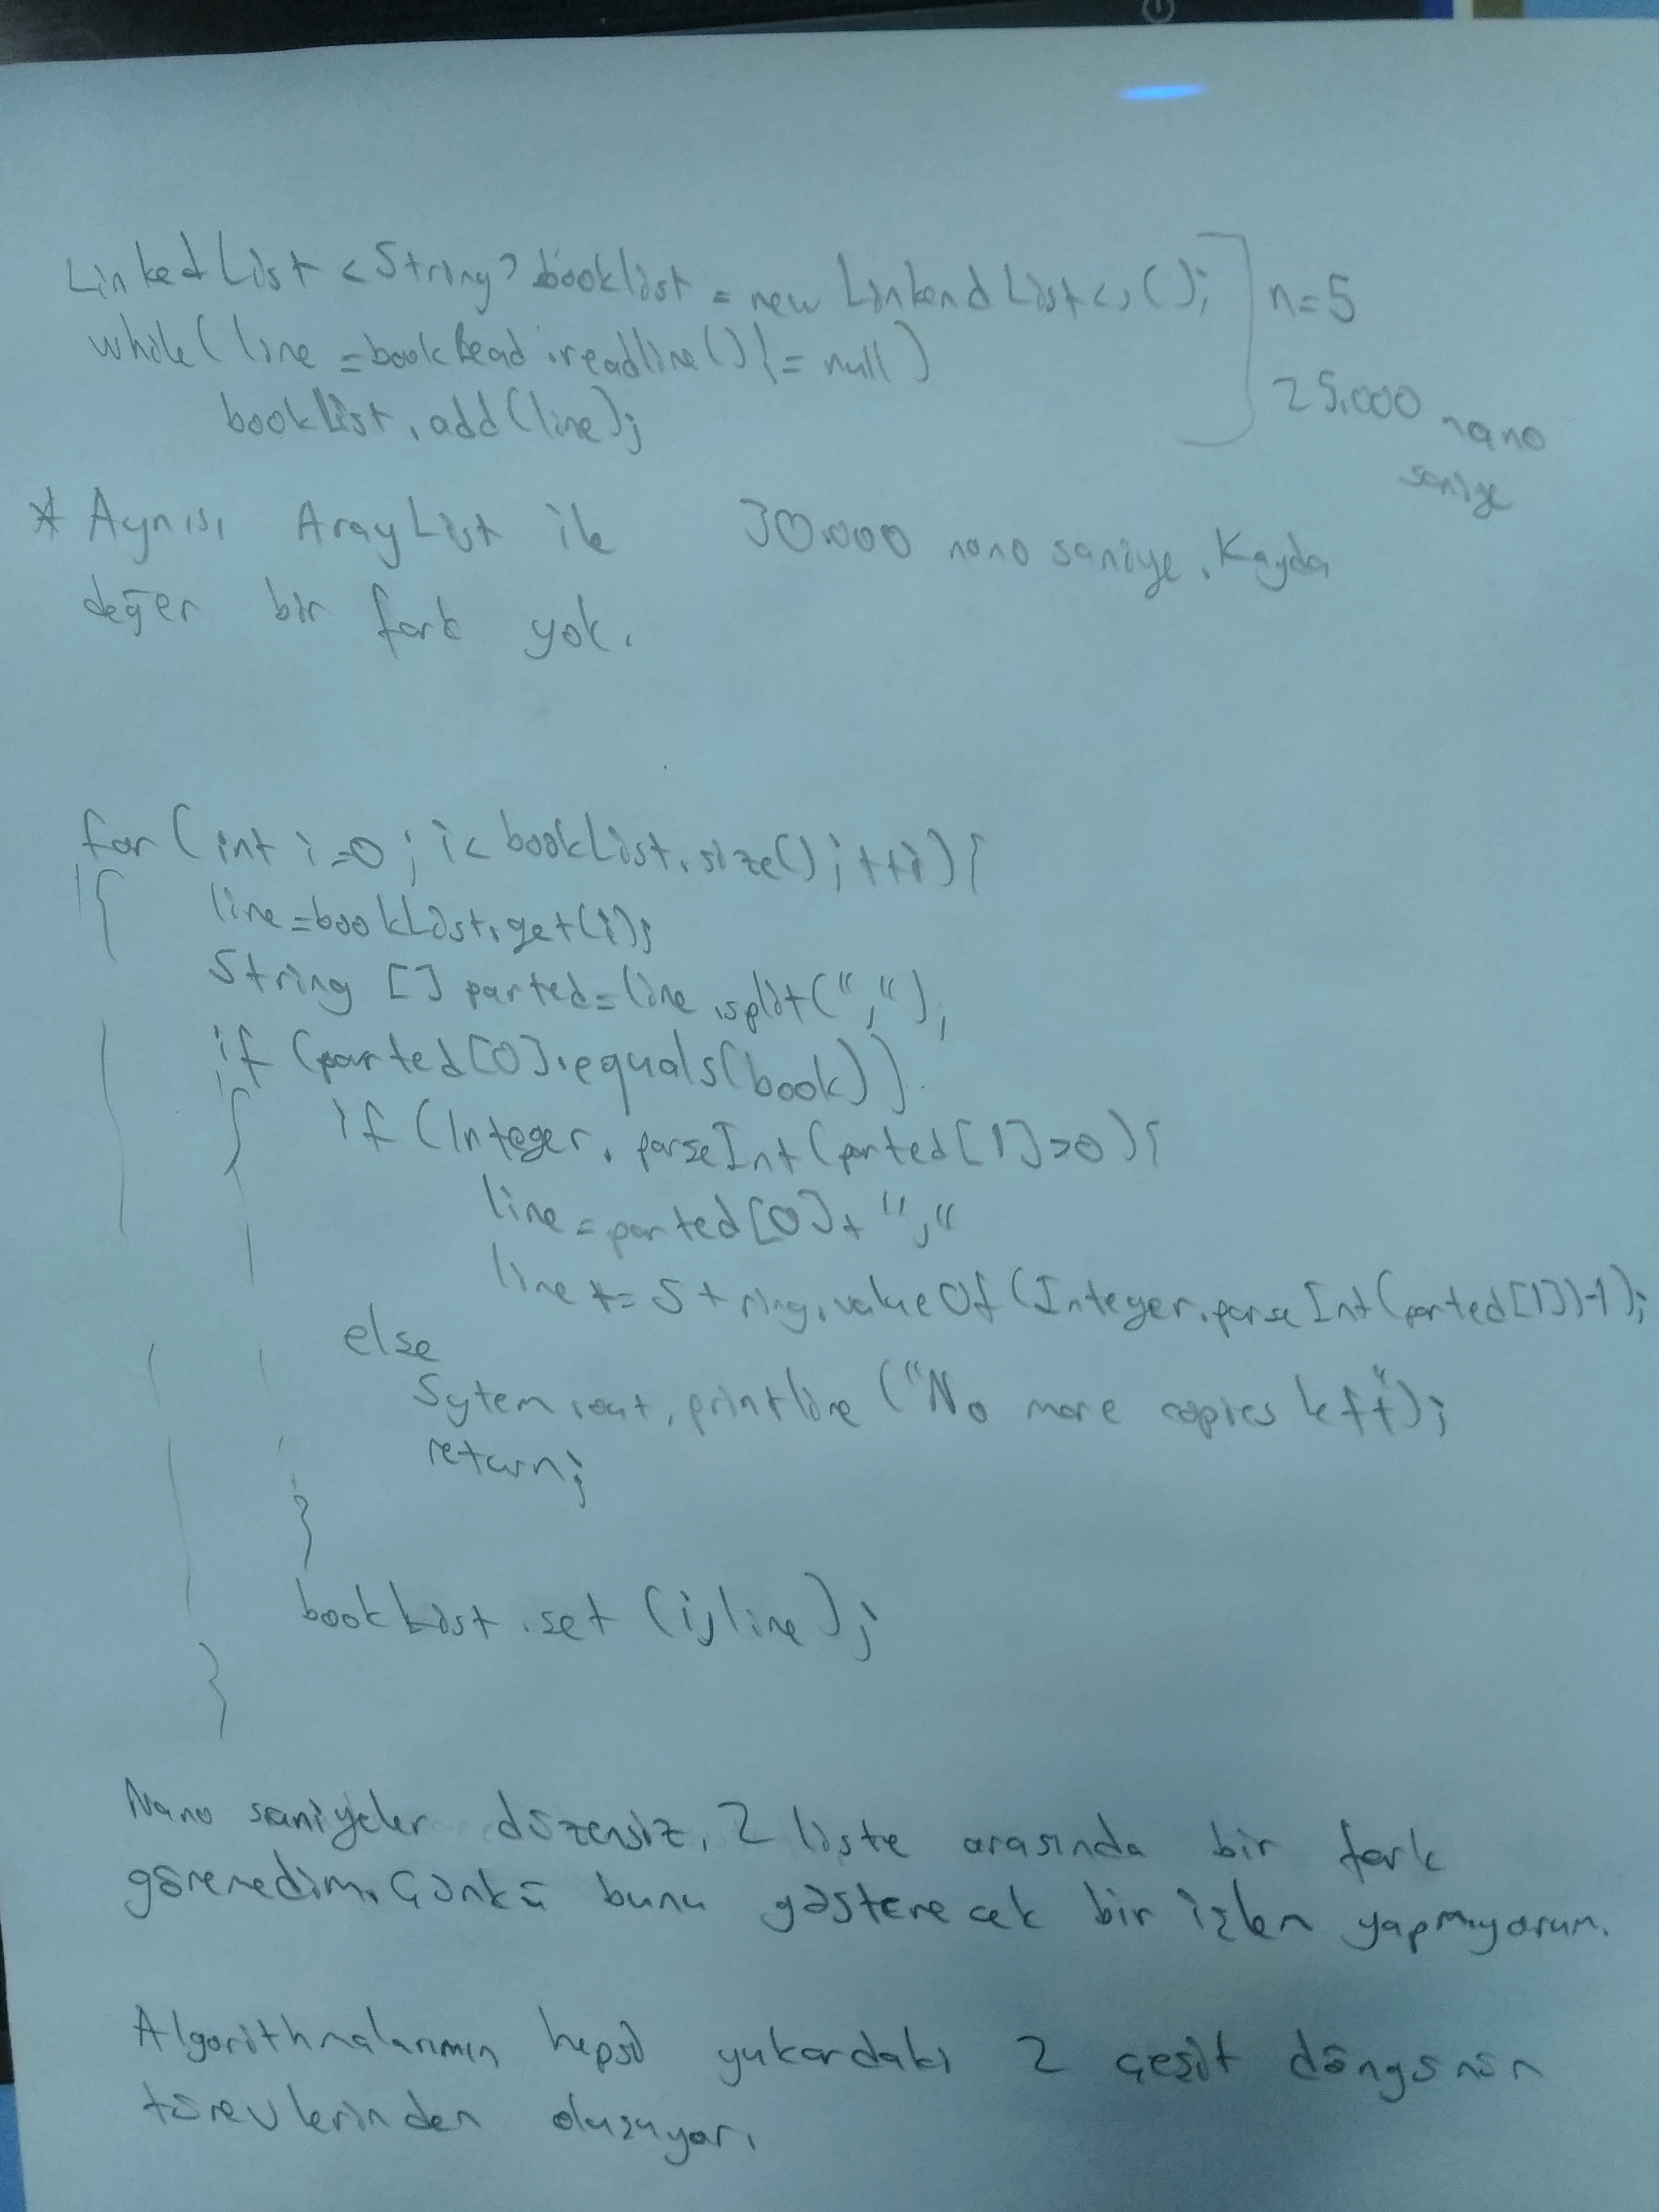 Linked List <String> booklist = new Linkend List<>();
n=5
while( line =bookRead.readline()!= null)
25.000 nano
saniye
bookList.add(line);
* Aynısı ArayList ile 30.000 nano saniye. Kayda
değer bir fark yok.
for (int i=0; i< bookList.size(); ++i){
{ line=bookList.get(i);
String [] parted=line.split(",");
if (parted[0].equals(book))
{ if (Integer.parseInt(parted[1]>0){
line=parted[0]+ ","
line += String.valueOf(Integer.parseInt(parted[1])-1);
else
Sytem.out.printline ("No more copies left");
return;
}
bookList.set (i,line);
}
Nano saniyeler düzensiz, 2 liste arasında bir fark
göremedim. Çünkü bunu gösterecek bir işlem yapmıyorum.
Algorithmalarımın hepsi yukardaki 2 çeşit döngünün
türevlerinden oluşuyor.